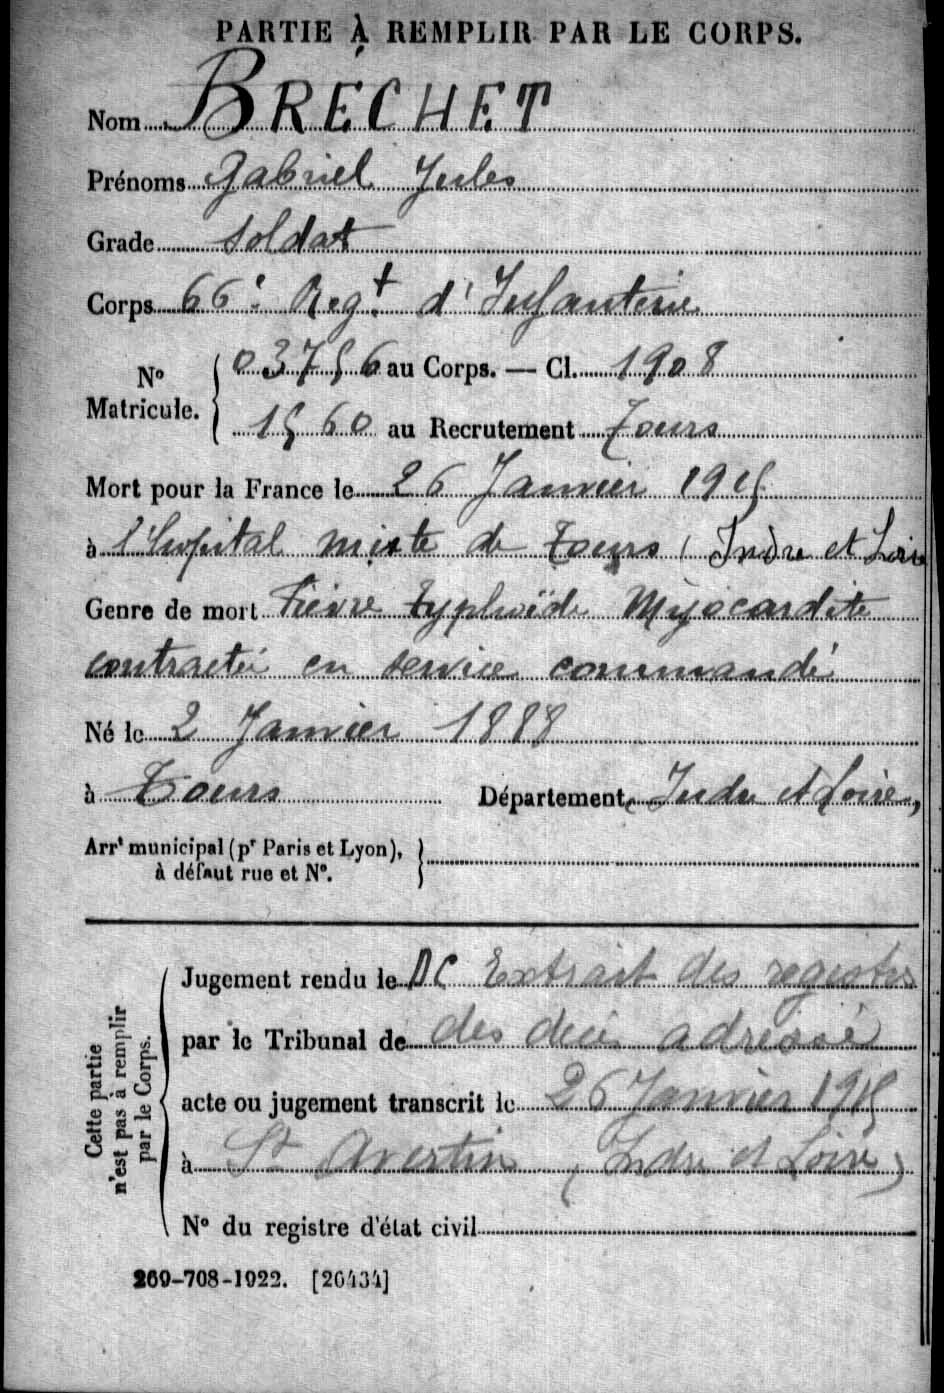 PARTIE À REMPLIR PAR LE CORPS.
Nom BRÉCHET
Prénoms Gabriel Jules
Grade Soldat
Corps 66e Regt d'Infanterie
No Matricule. 03756 au Corps. — Cl. 1908
1560 au Recrutement Tours
Mort pour la France le 26 Janvier 1915
à l'hopital mixte de Tours (Indre et Loire
Genre de mort Fièvre typhoïde Myocardite
contractée en service commandé
Né le 2 Janvier 1888
à Tours Département (Indre et Loire,
Arrt municipal (pr Paris et Lyon),
à défaut rue et No.
Cette partie
n'est pas à remplir
par le Corps.
Jugement rendu le DC Extrait des registres
par le Tribunal de des décès adressé
acte ou jugement transcrit le 26 Janvier 1915
à St Avertin (Indre et Loire)
No du registre d'état civil
269-708-1922. [26434]